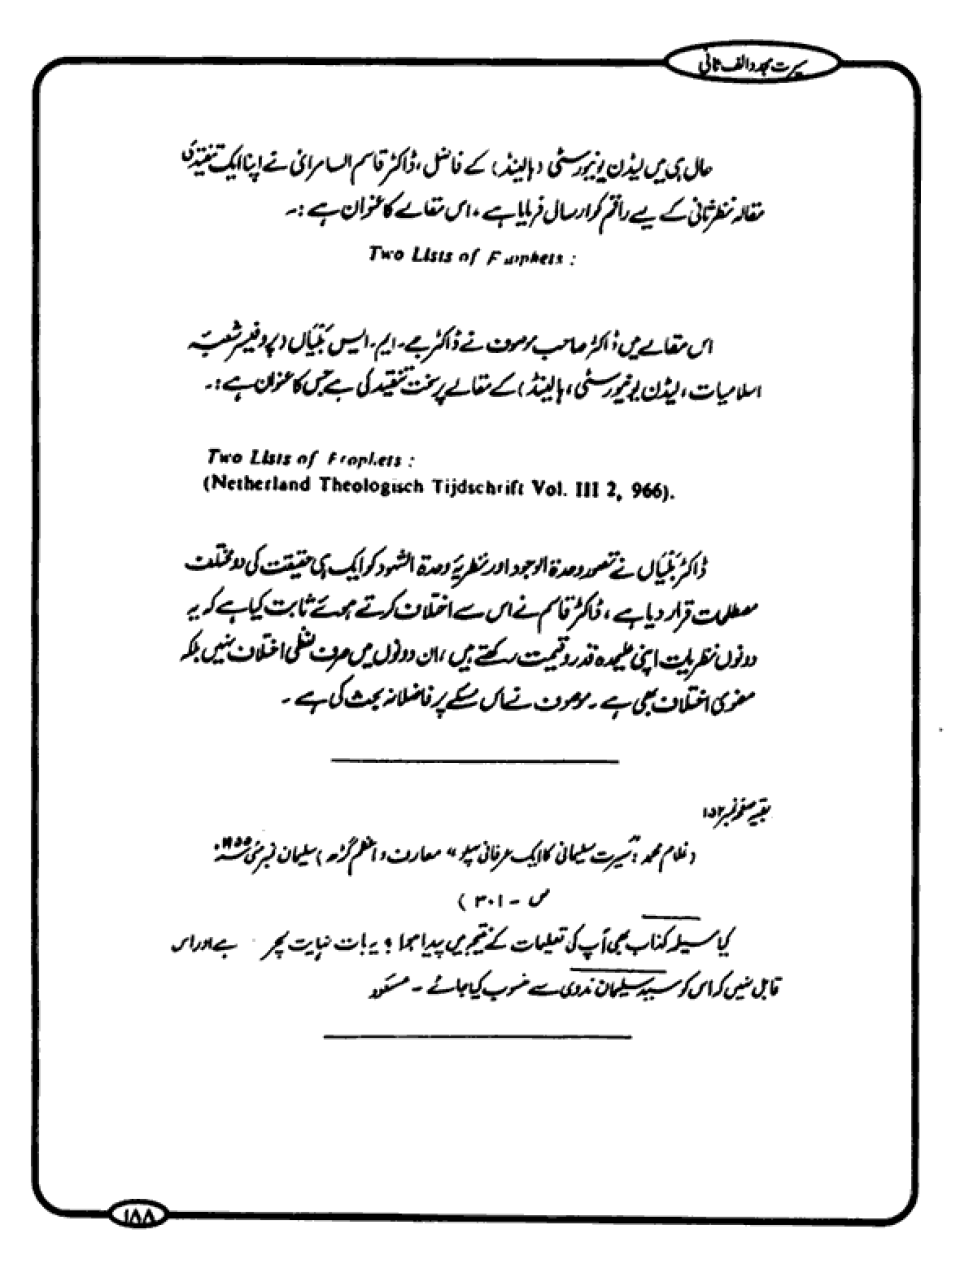 سیرت مجدد الف ثانی
حال ہی میں لیڈن یونیورسٹی (ہالینڈ) کے فاضل، ڈاکٹر قاسم السامرائی نے اپنا ایک تنقیدی
مقالہ نظرثانی کے لیے راقم کو ارسال فرمایا ہے، اس مقالے کا عنوان ہے :۔
Two Lists of Prophets :
اس مقالے میں ڈاکٹر صاحب موصوف نے ڈاکٹر جے۔ ایم۔ ایس بَلیَاں (پروفیسر شعبۂ
اسلامیات، لیڈن یونیورسٹی، ہالینڈ) کے مقالے پر سخت تنقید کی ہے جس کا عنوان ہے :۔
Two Lists of Prophets :
(Netherland Theologisch Tijdschrift Vol. III 2, 966).
ڈاکٹر بَلیَاں نے تصور وحدۃ الوجود اور نظریۂ وحدۃ الشہود کو ایک ہی حقیقت کی دو مختلف
مصطلحات قرار دیا ہے، ڈاکٹر قاسم نے اس سے اختلاف کرتے ہوئے ثابت کیا ہے کہ یہ
دونوں نظریات اپنی علیحدہ قدر و قیمت رکھتے ہیں، ان دونوں میں صرف لفظی اختلاف نہیں بلکہ
معنوی اختلاف بھی ہے۔ موصوف نے اس مسئلے پر فاضلانہ بحث کی ہے۔
بقیہ صفحہ نمبر ۱۵۲
(غلام محمد: "سیرت سلیمانی کا ایک عرفانی پہلو" معارف (اعظم گڑھ) سلیمان نمبر مئی
ص - ۳۰۱)
کیا مسیلمہ کذاب بھی آپ کی تعلیمات کے نتیجہ میں پیدا ہوا؟ یہ بات نہایت لچر ہے اور اس
قابل نہیں کہ اس کو سید سلیمان ندوی سے منسوب کیا جائے۔ مسعود
۱۸۸